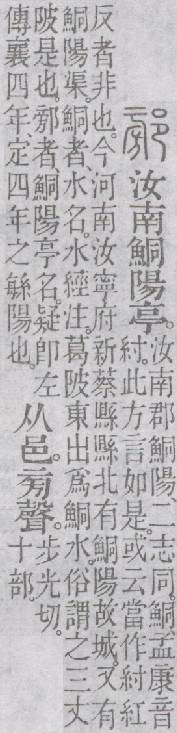 䣙
汝南鮦陽亭。
汝南郡鮦陽、二志同。鮦孟康音
紂。此方言如是。或云當作紂紅
反者非也。今河南汝寧府新蔡縣縣北有鮦陽故城。又有
鮦陽渠。鮦者、水名。水經注。葛陂東出爲鮦水。俗謂之三丈
陂是也。䣙者、鮦陽亭名。疑卽左
傳襄四年定四年之緐陽也。
从邑。㫄聲。
步光切。
十部。